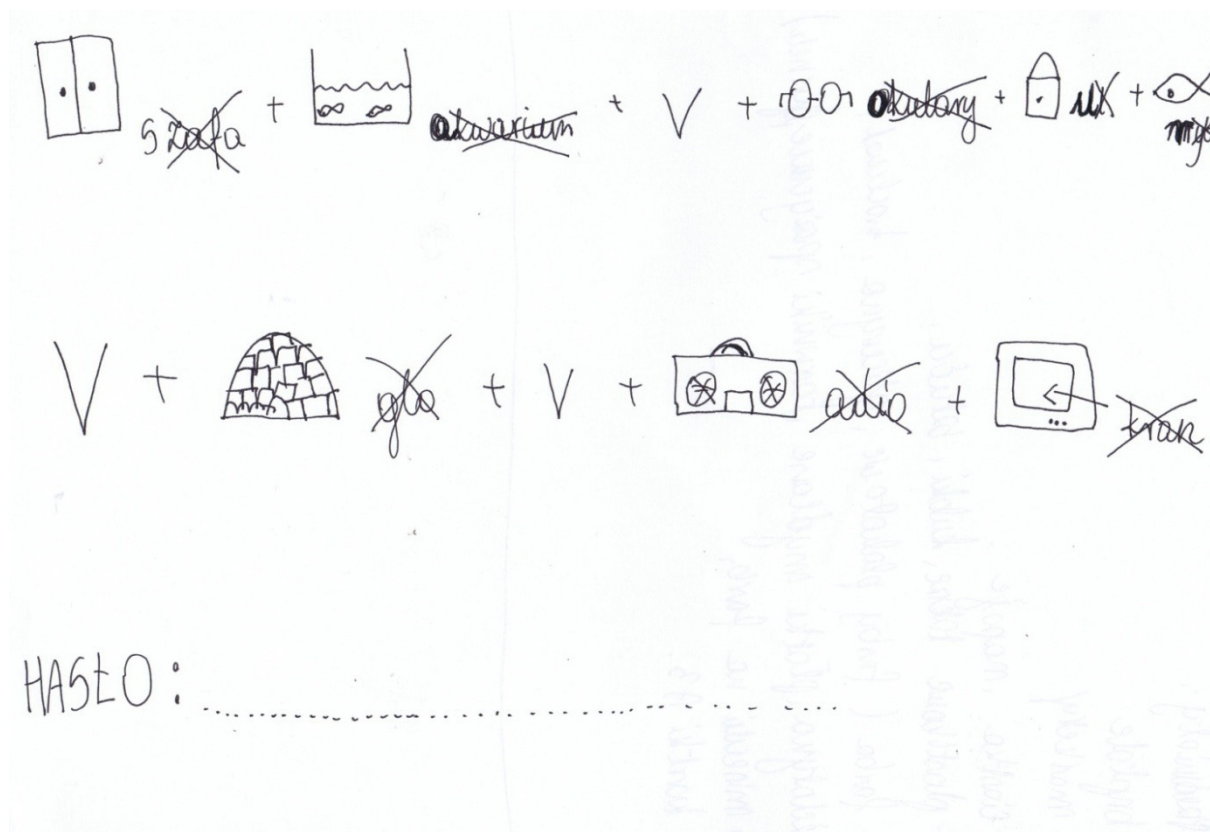 szafa + akwarium + V + okulary + +
V + glo + V + adio + kran
HASŁO: ..............................